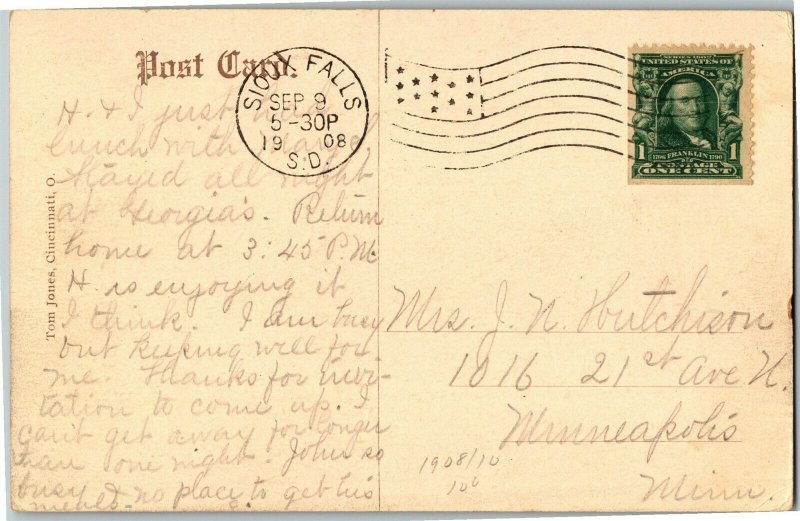 Post Card.
SIOUX FALLS
SEP 9
5-30P
19 08
S.D.
SERIES 1902
UNITED STATES OF
AMERICA
1 1706 FRANKLIN 1790 1
POSTAGE
ONE CENT
Tom Jones, Cincinnati, O.
H. & I just had
lunch with
Stayed all night
at Georgia's. Return
home at 3:45 P.M.
H. is enjoying it
I think. I am busy
but keeping well for
me. Thanks for invi-
tation to come up. I
can't get away for longer
than one night. John so
busy & no place to get his
meals.
Mrs. J. N. Hutchison
1016 21st Ave N.
Minneapolis
Minn.
1908/10
100